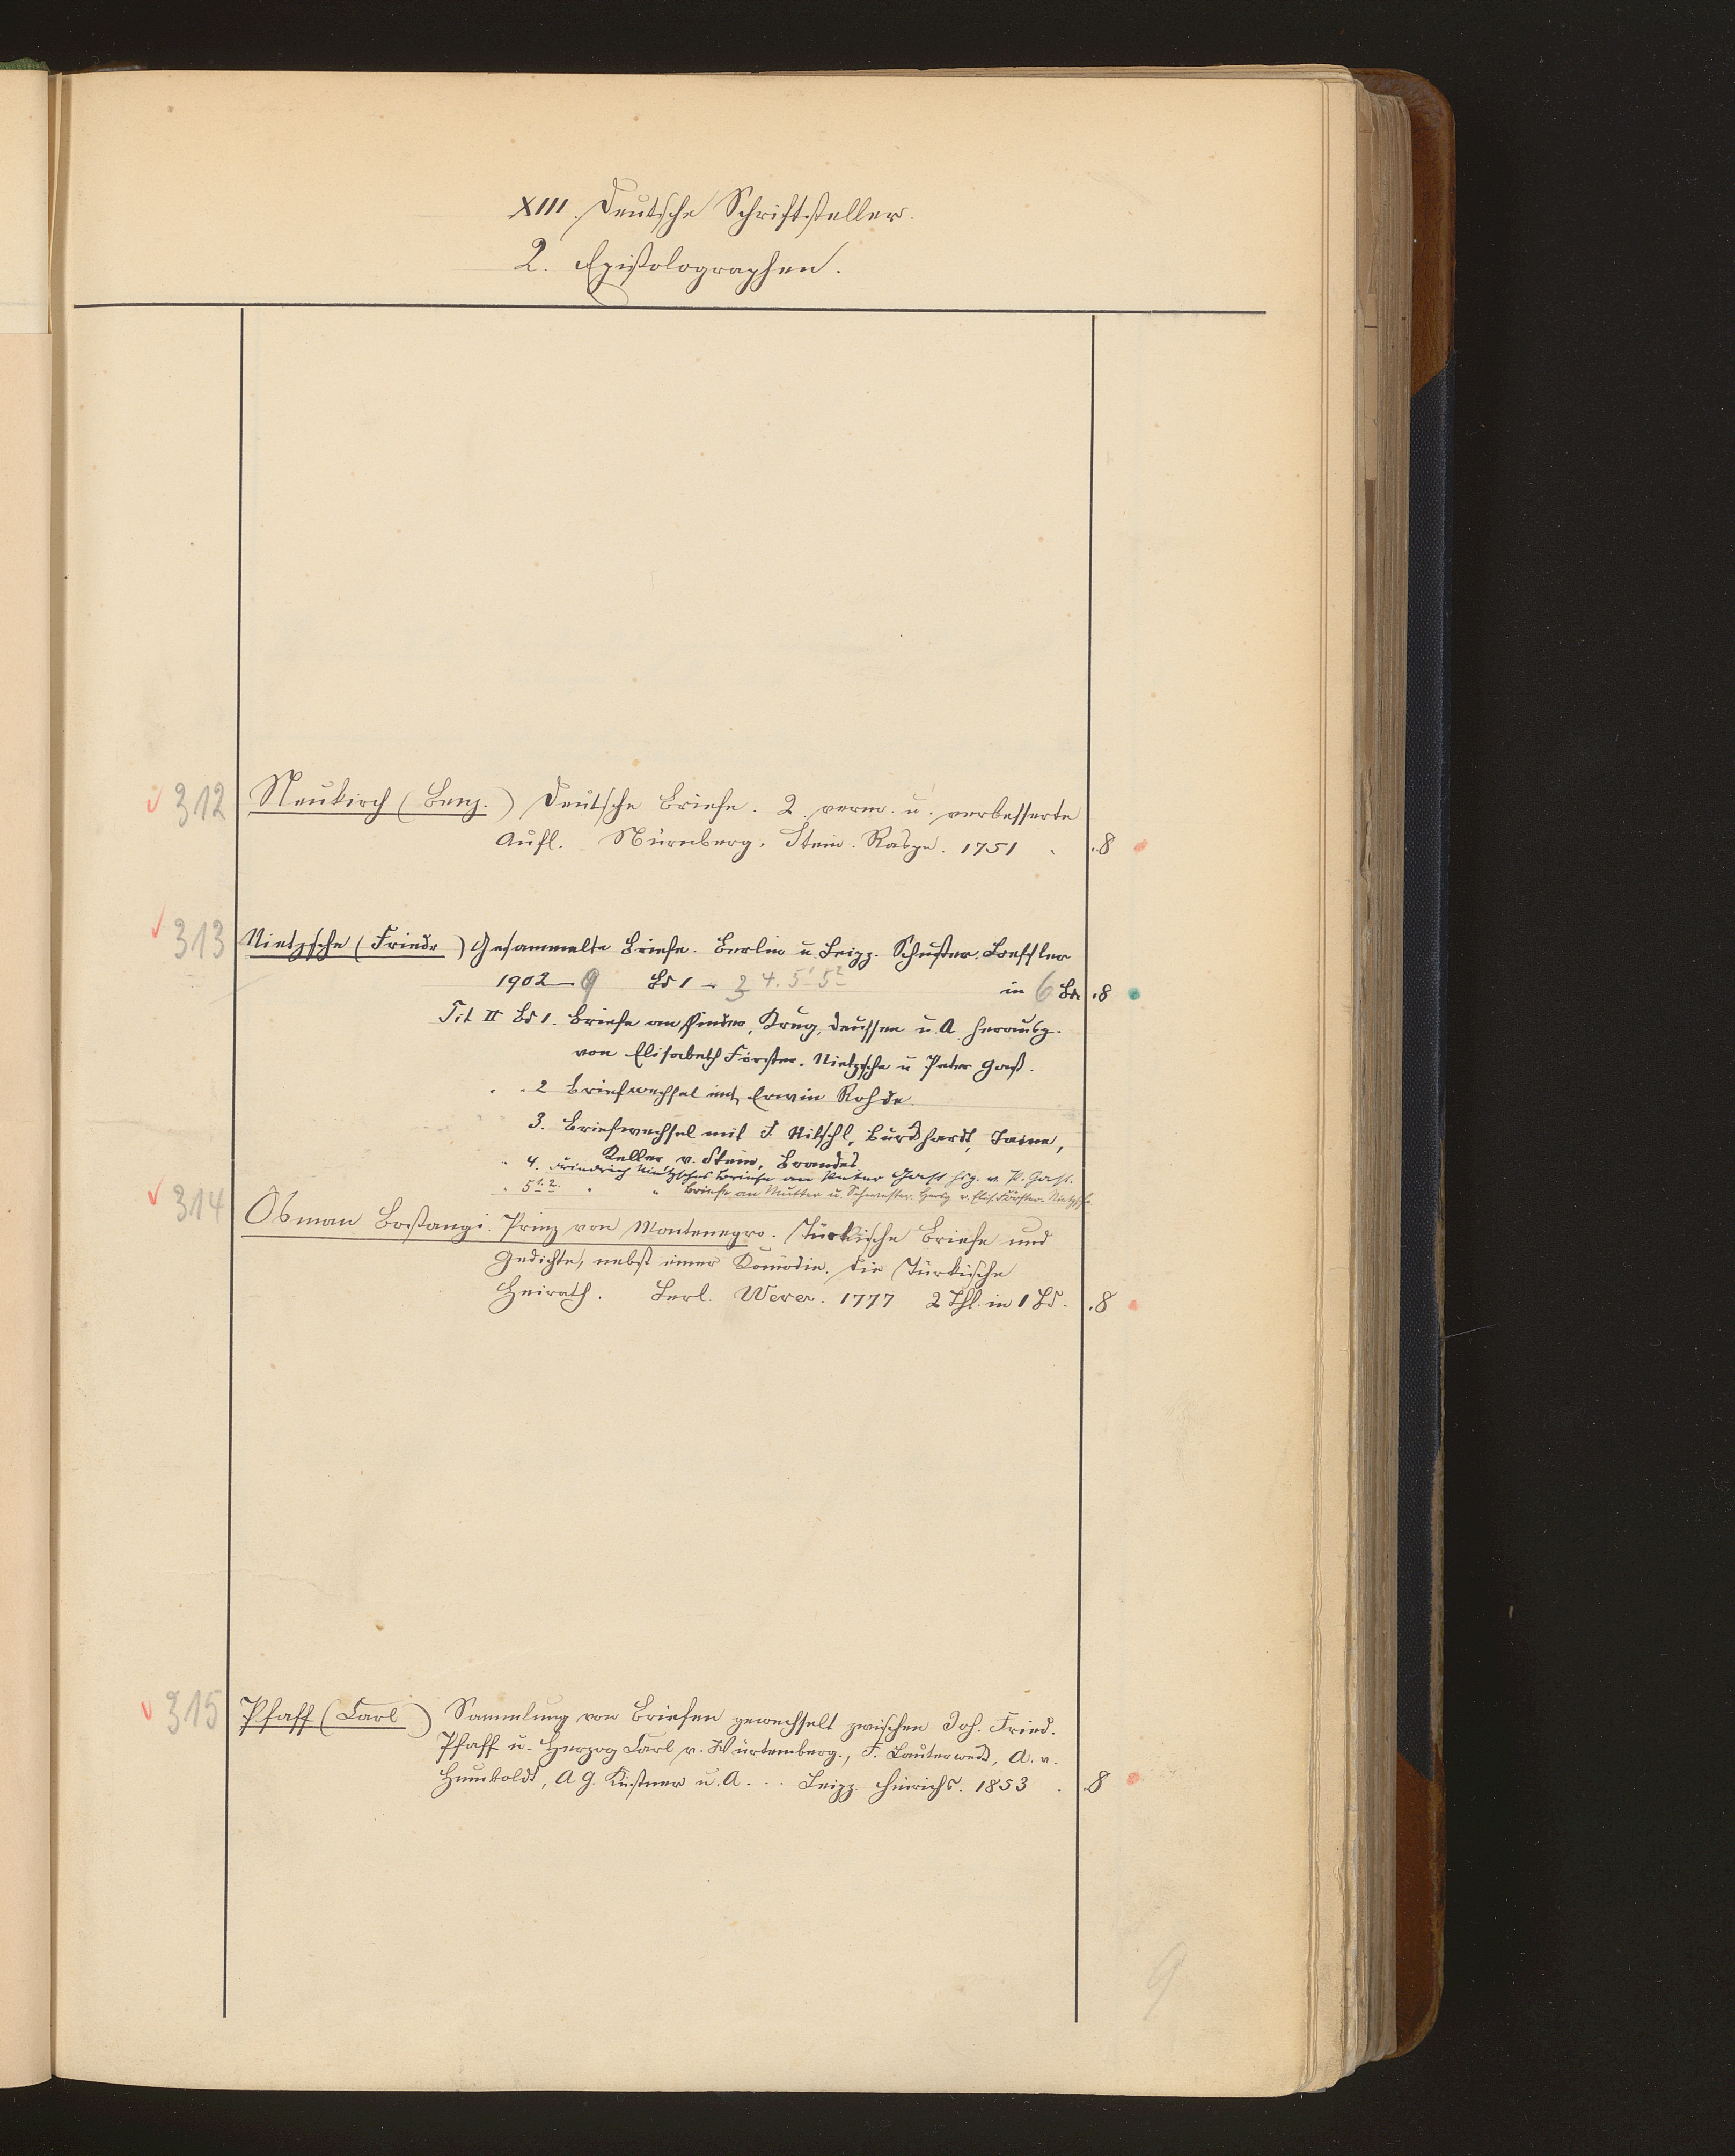 XIII. Deutsche Schriftsteller.
2. Epistolographen.
312 Neukirch (Benj.) Deutsche Briefe. 2. verm. u. verbesserte
Aufl. Nürnberg. Stein. Raspe. 1751 . 8
313 Nietzsche (Friedr) Gesammelte Briefe. Berlin u. Leipz. Schuster. Loeffler
1902–9 Bd 1 – 3 4. 5¹ 5² in 6 Bde 8
Tit II Bd 1. Briefe an Pinder, Krug, Deussen u. A. herausg.
von Elisabeth Förster. Nietzsche u Peter Gast.
" " 2 Briefwechsel mit Erwin Rohde.
3. Briefwechsel mit F. Ritschl, Burckhardt, Taine,
Keller v. Stein, Brandes.
" 4. Friedrich Nietzsches Briefe an Peter Gast hsg. v. P. Gast.
" 5 1. 2. " " Briefe an Mutter u. Schwester. Hersg v. Elis. Förster-Nietzsche
314 Osman Bostangi. Prinz von Montenegro. Türkische Briefe und
Gedichte, nebst einer Komödie. Die Türkische
Heirath. Berl. Wever. 1777 2 Thl. in 1 Bd. 8
315 Pfaff (Carl) Sammlung von Briefen gewechselt zwischen Joh. Fried.
Pfaff u. Herzog Carl v. Würtemberg., F. Bouterwedt, A. v.
Humboldt, A G. Kästner u. A. .. Leipz. Hinrichs. 1853 . 8
9